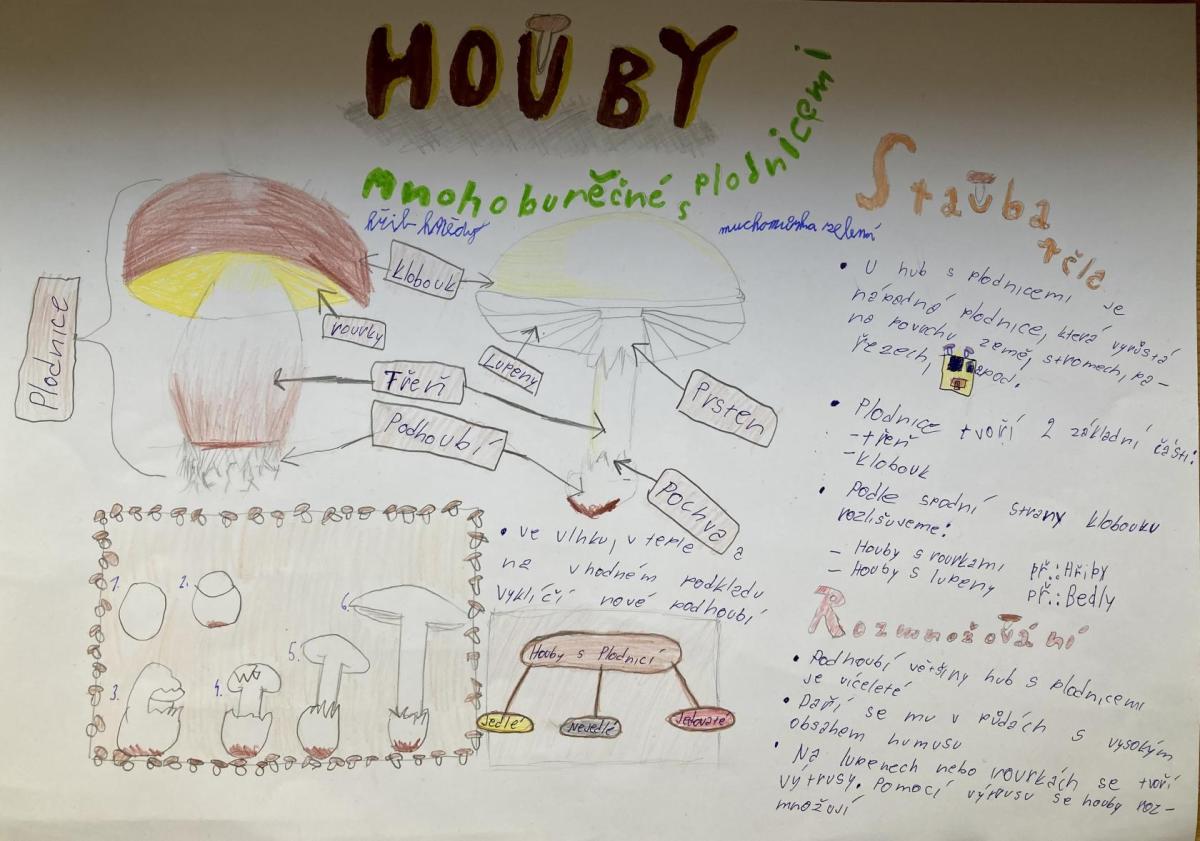 HOUBY
Mnohobuněčné s plodnicemi
hřib hnědý
muchomůrka zelená
Plodnice
Klobouk
rourky
Lupeny
Třeň
Prsten
Podhoubí
Pochva
Stavba těla
• U hub s plodnicemi je
nápadná plodnice, která vyrůstá
na povrchu země, stromech, pa-
řezech, apod.
• Plodnice tvoří 2 základní části:
- třeň
- klobouk
• Podle spodní strany klobouku
rozlišujeme:
- Houby s rourkami př.: Hřiby
- Houby s lupeny př.: Bedly
1.
2.
3.
4.
5.
6.
• ve vlhku, v teple a
na vhodném podkladu
vyklíčí nové podhoubí
Houby s Plodnicí
Jedlé
Nejedlé
Jedovaté
Rozmnožování
• Podhoubí většiny hub s plodnicemi
je víceleté
• Daří se mu v půdách s vysokým
obsahem humusu
• Na lupenech nebo rourkách se tvoří
výtrusy. Pomocí výtrusu se houby roz-
množují